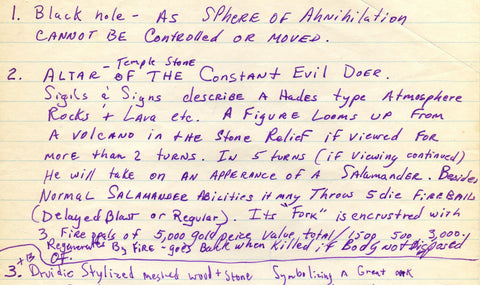 1. Black hole - As Sphere of Ahnihilation
cannot be controlled or moved.
2. Altar - Temple Stone of the Constant Evil Doer.
Sigils & Signs describe a Hades type Atmosphere
Rocks & Lava etc. A Figure Looms up From
A volcano in the Stone Relief if viewed for
more than 2 turns. In 5 turns (if viewing continued)
He will take on an apperance of a Salamander. Besides
Normal Salamander Abilities it may Throw 5 die FireBalls
(Delayed Blast or Regular). Its "Fork" is encrusted with
3 Fire opals of 5,000 gold peice value, total/1500 500 3,000.
Regenerates By Fire - goes Back when Killed if Body not disposed
of.
3. Druidic Stylized meshed wood + Stone Symbolizing a Great oak